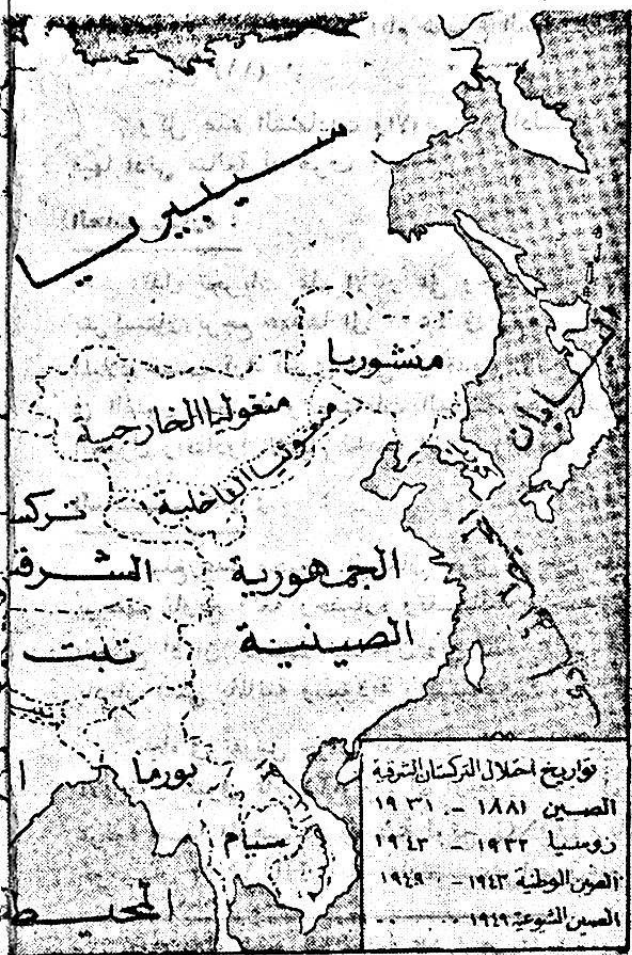 سيبيريا
منشوريا
منغوليا الخارجية
منغوليا الداخلية
اليابان
كوريا
تركس
الشرقي
الجمهورية
الصينية
تبت
بورما
سيام
المحيط
تواريخ احتلال التركستان الشرقية
الصين ١٨٨١ - ١٩٣١
روسيا ١٩٣٢ - ١٩٤٣
الصين الوطنية ١٩٤٣ - ١٩٤٩
الصين الشيوعية ١٩٤٩ ٠٠ ٠٠